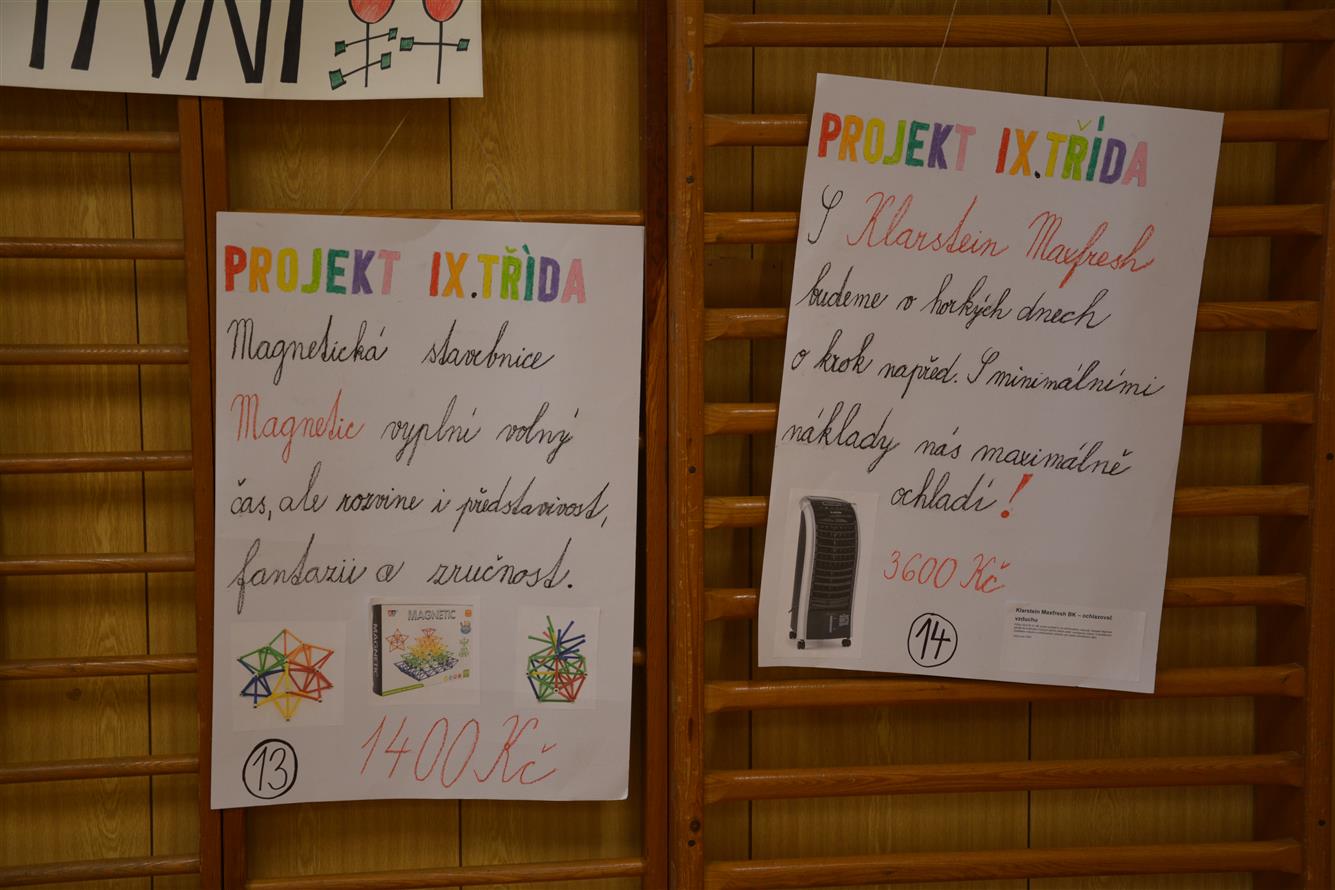 PROJEKT IX.TŘÌDA
Magnetická stavebnice
Magnetic vyplní volný
čas, ale rozvine i představivost,
fantazii a zručnost.
MAGNETIC
MAGNETIC
13
1400 Kč
PROJEKT IX.TŘÍDA
S Klarstein Maxfresh
budeme v horkých dnech
o krok napřed. S minimálními
náklady nás maximálně
ochladí!
3600 Kč
14
Klarstein Maxfresh BK – ochlazovač
vzduchu